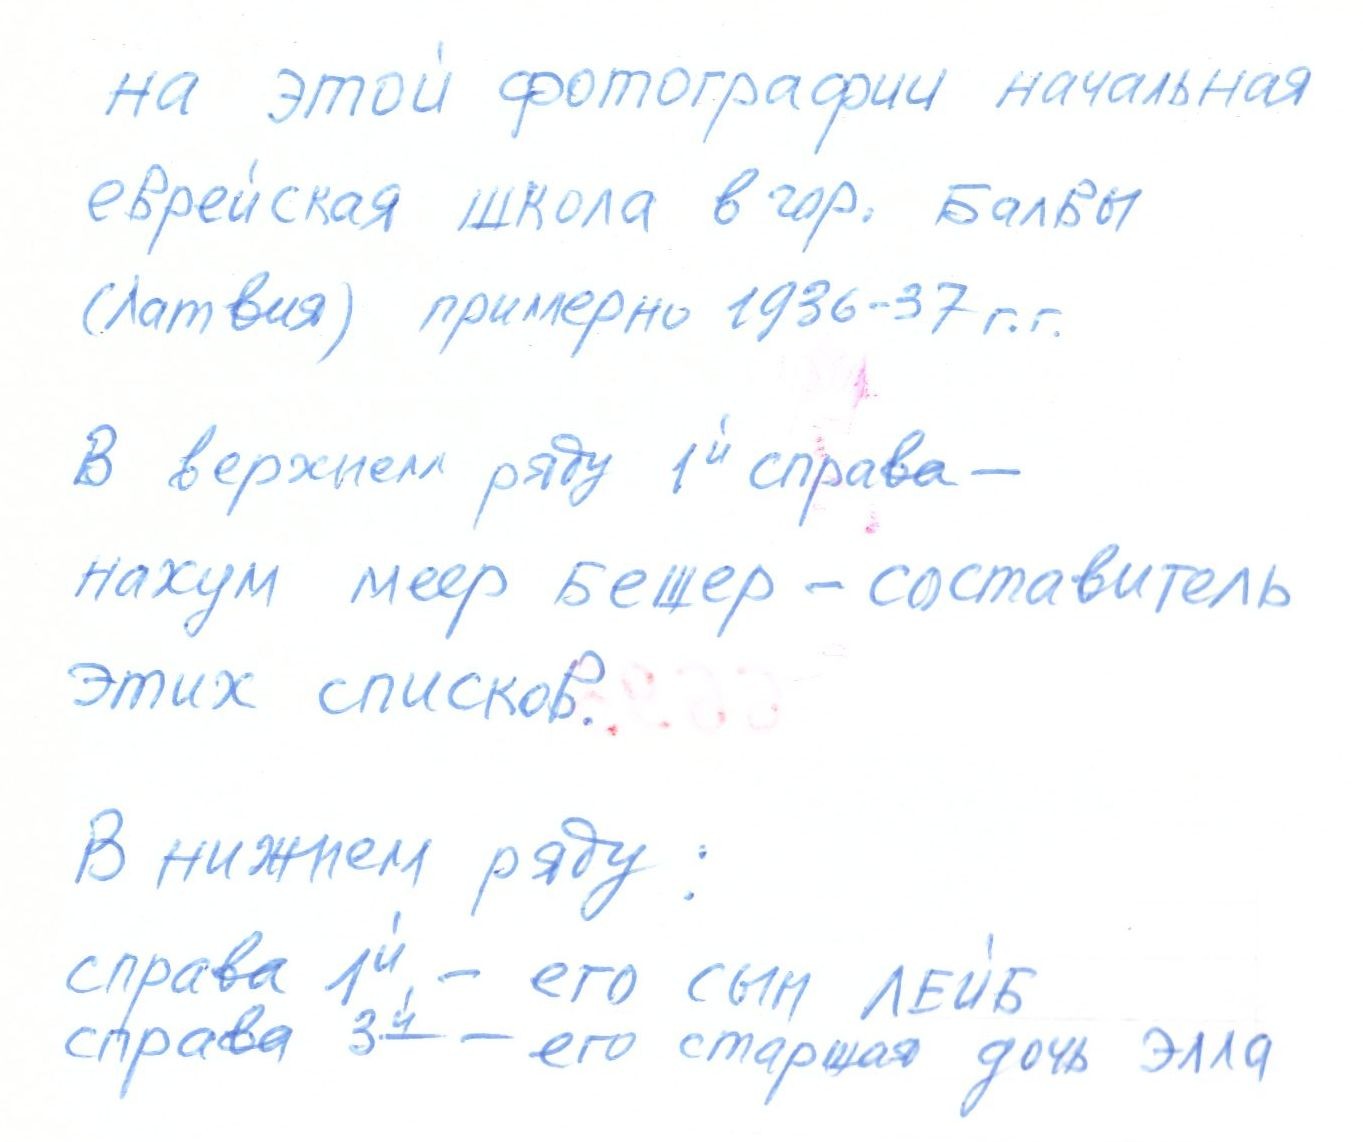 на этой фотографии начальная
еврейская школа в гор. Балвы
(Латвия) примерно 1936-37 г.г.
В верхнем ряду 1й справа –
нахум меер Бешер – составитель
этих списков.
В нижнем ряду :
справа 1й – его сын ЛЕЙБ
справа 3й – его старшая дочь ЭЛЛА